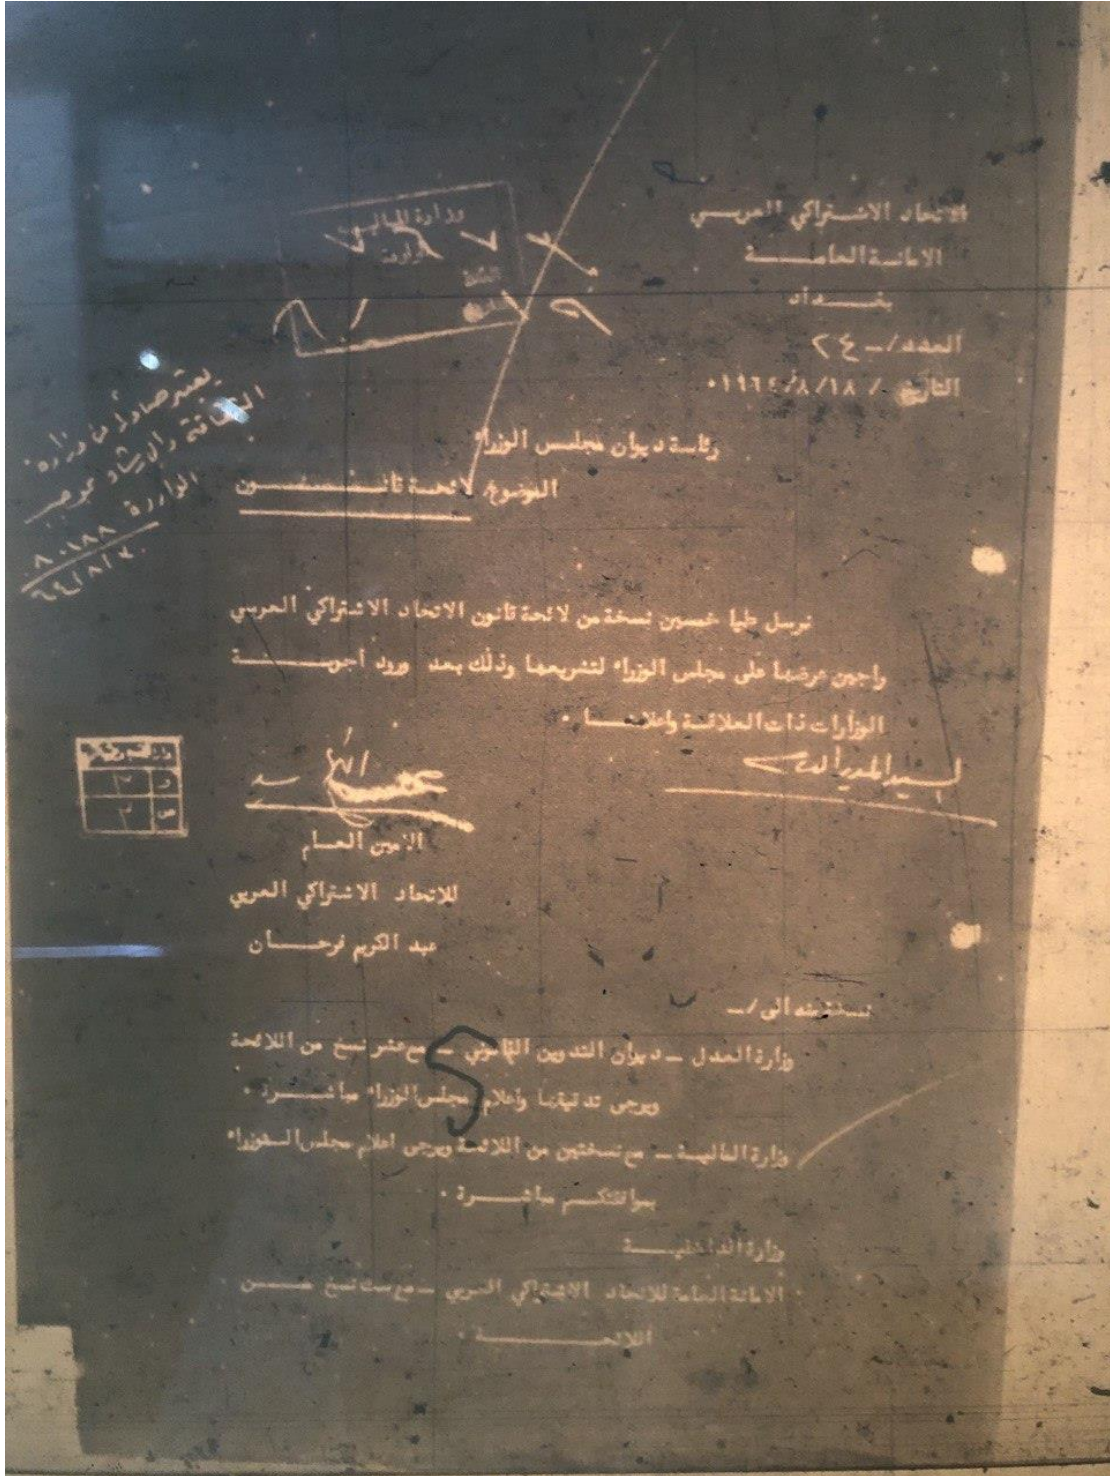 الاتحاد الاشتراكي العربي
الامانة العامة
بغداد
العدد/ــ ٢٤
التاريخ / ١٩٦٤/٨/١٨٠
وزارة المالية
الواردة
يعتبر صادراً من وزارة
الثقافة والارشاد بموجب
الواردة ٨٠١٨٨
٦٤/٨/٢٠
رئاسة ديوان مجلس الوزراء
الموضوع/ لائحة قانون
نرسل طيا خمسين نسخة من لائحة قانون الاتحاد الاشتراكي العربي
راجين عرضها على مجلس الوزراء لتشريعها وذلك بعد ورود اجوبة
الوزارات ذات العلاقة واعلامنا ٠
السيد المدير العام
الامين العام
للاتحاد الاشتراكي العربي
عبد الكريم فرحان
د ٣
س ٢
نسخة منه الى /ــ
وزارة العدل ــ ديوان التدوين القانوني ــ مع عشر نسخ من اللائحة
ويرجى تدقيقها واعلام مجلس الوزراء مباشرة ٠
وزارة المالية ــ مع نسختين من اللائحة ويرجى اعلام مجلس الوزراء
بموافقتكم مباشرة ٠
وزارة الداخلية
الامانة العامة للاتحاد الاشتراكي العربي ــ مع ست نسخ من
اللائحة ٠